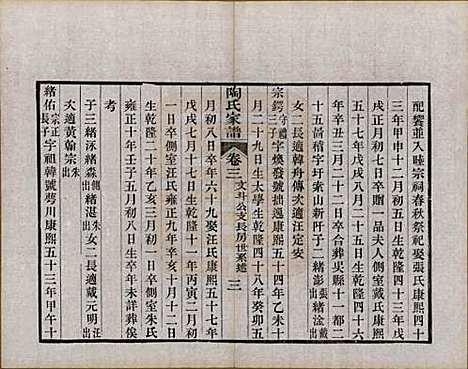 配饗並入睦宗祠春秋祭祀娶張氏康熙四十
三年甲申十二月初五日生乾隆四十三年戊
戌正月初三日卒贈一品夫人側室戴氏康熙
五十年辛卒八月初五日生乾隆四十六
年辛丑十二月二十二日卒合葬吳縣十一都二
十五啚朝字圩索山新阡子一緒彭張出緒淦戴出
女二長適韓舟傳次適汪定安
宗鍔守禮子字煥發號拙逸康熙五十四年乙未十
月二十九日生太學生乾隆四十八年癸卯五
月初八日卒年六十九娶汪氏康熙五十七年
戊戌七月初八日生乾隆十一年丙寅二月初
一日卒側室汪氏雍正九年辛亥十月十二日
生乾隆二十年乙亥三月初一日卒側室朱氏
雍正十年壬子十月初八日生卒年未詳葬俟
考
子三緒泳緒森側出緒湛朱出女二長適戴元明汪出
次適黃翰宗朱出
緒佑宗正長子字祖韓號蕚川康熙五十三年甲午十
陶氏家譜
卷三
文斗公支長房世系述
三